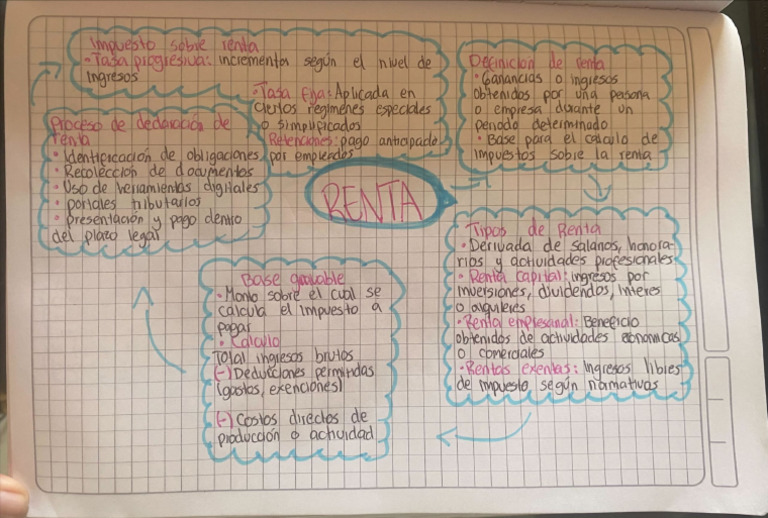 Impuesto sobre renta
• Tasa progresiva: incrementa según el nivel de
ingresos
• Tasa fija: Aplicada en
ciertos regimenes especiales
o simplificados
Retenciones: pago anticipado
por empleados
Definicion de renta
• Ganancias o ingresos
obtenidos por una persona
o empresa durante un
periodo determinado
• Base para el calculo de
impuestos sobre la renta
Proceso de declaración de
renta
• Identificación de obligaciones
• Recolección de documentos
• Uso de herramientas digitales
• portales tributarios
• presentación y pago dentro
del plazo legal
RENTA
Tipos de Renta
• Derivada de salarios, honora-
rios y actividades profesionales
• Renta capital: ingresos por
inversiones, dividendos, interes
o alquileres
• Renta empresarial: Beneficio
obtenidos de actividades economicas
o comerciales
• Rentas exentas: Ingresos libres
de impuesto según normativas
Base gravable
• Monto sobre el cual se
calcula el impuesto a
pagar
• Calculo
Total ingresos brutos
(-) Deducciones permitidas
(gastos, exenciones)
(-) Costos directos de
producción o actividad